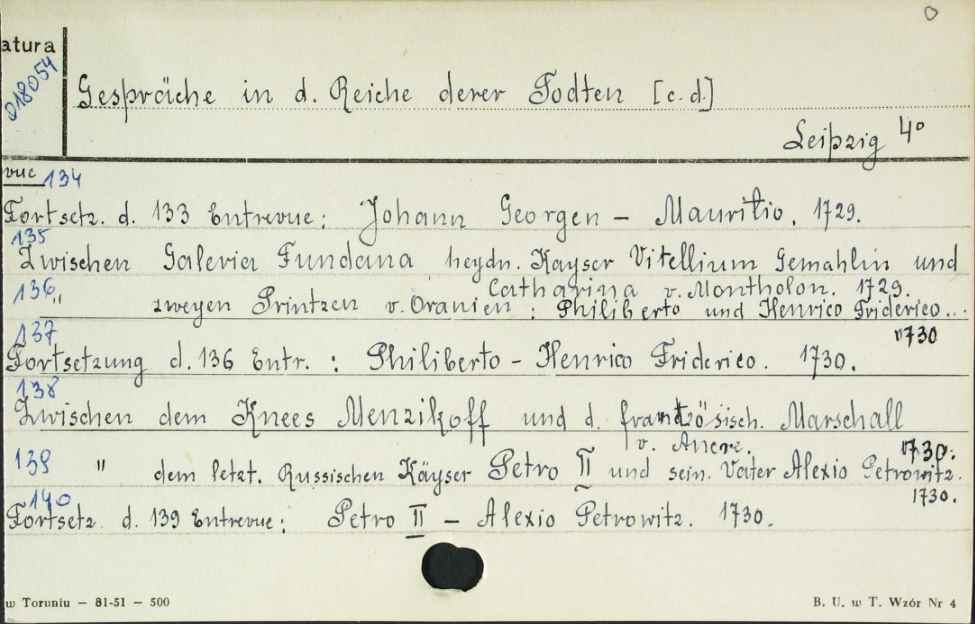 0
atura
018054
Gespräche in d. Reiche derer Todten [c.d.]
Leipzig 4°
vue 134
Fortsetz. d. 133 Entrevue: Johann Georgen - Mauritio. 1729.
135
Zwischen Galeria Fundana heydn. Kayser Vitellium Gemahlin und
Catharina v. Montholon. 1729.
136 " zweyen Printzen v. Oranien : Philiberto und Henrico Friderico...
1730
137
Fortsetzung d. 136 Entr. : Philiberto - Henrico Friderico. 1730.
138
Zwischen dem Knees Menzikoff und d. frantzösisch. Marschall
v. Ancre. 1730.
139 " dem letzt. Russischen Käyser Petro II und sein. Vater Alexio Petrowitz.
1730.
140
Fortsetz. d. 139 Entrevue: Petro II - Alexio Petrowitz. 1730.
w Toruniu - 81-51 - 500
B. U. w T. Wzór Nr 4